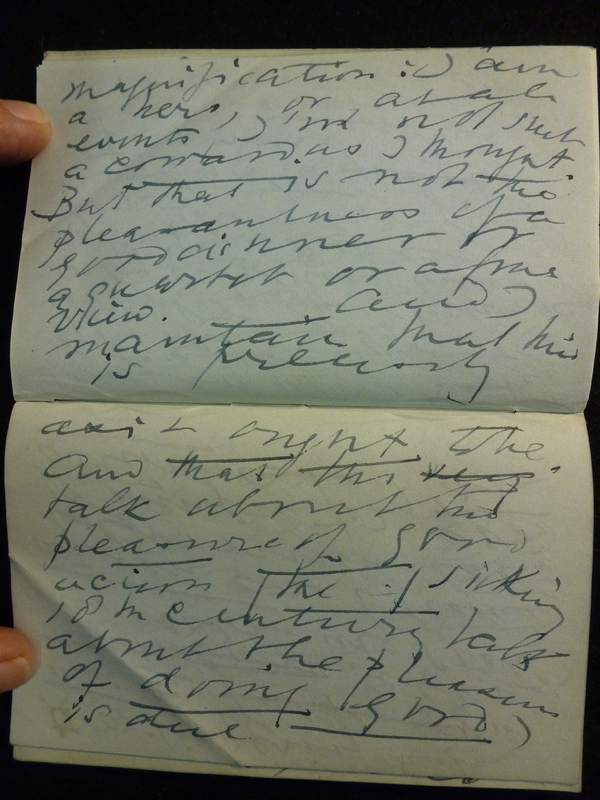 magnification: I am
a hero, or at all
events, I am not such
a coward as I thought.
But that is not the
pleasantness of a
good dinner or
a quartet or a fine
view. And I
maintain that this
is precisely
as it ought to be.
And that this very
talk about the
pleasure of good
action (the sickening
18th century talk
about the pleasure
of doing good)
is due